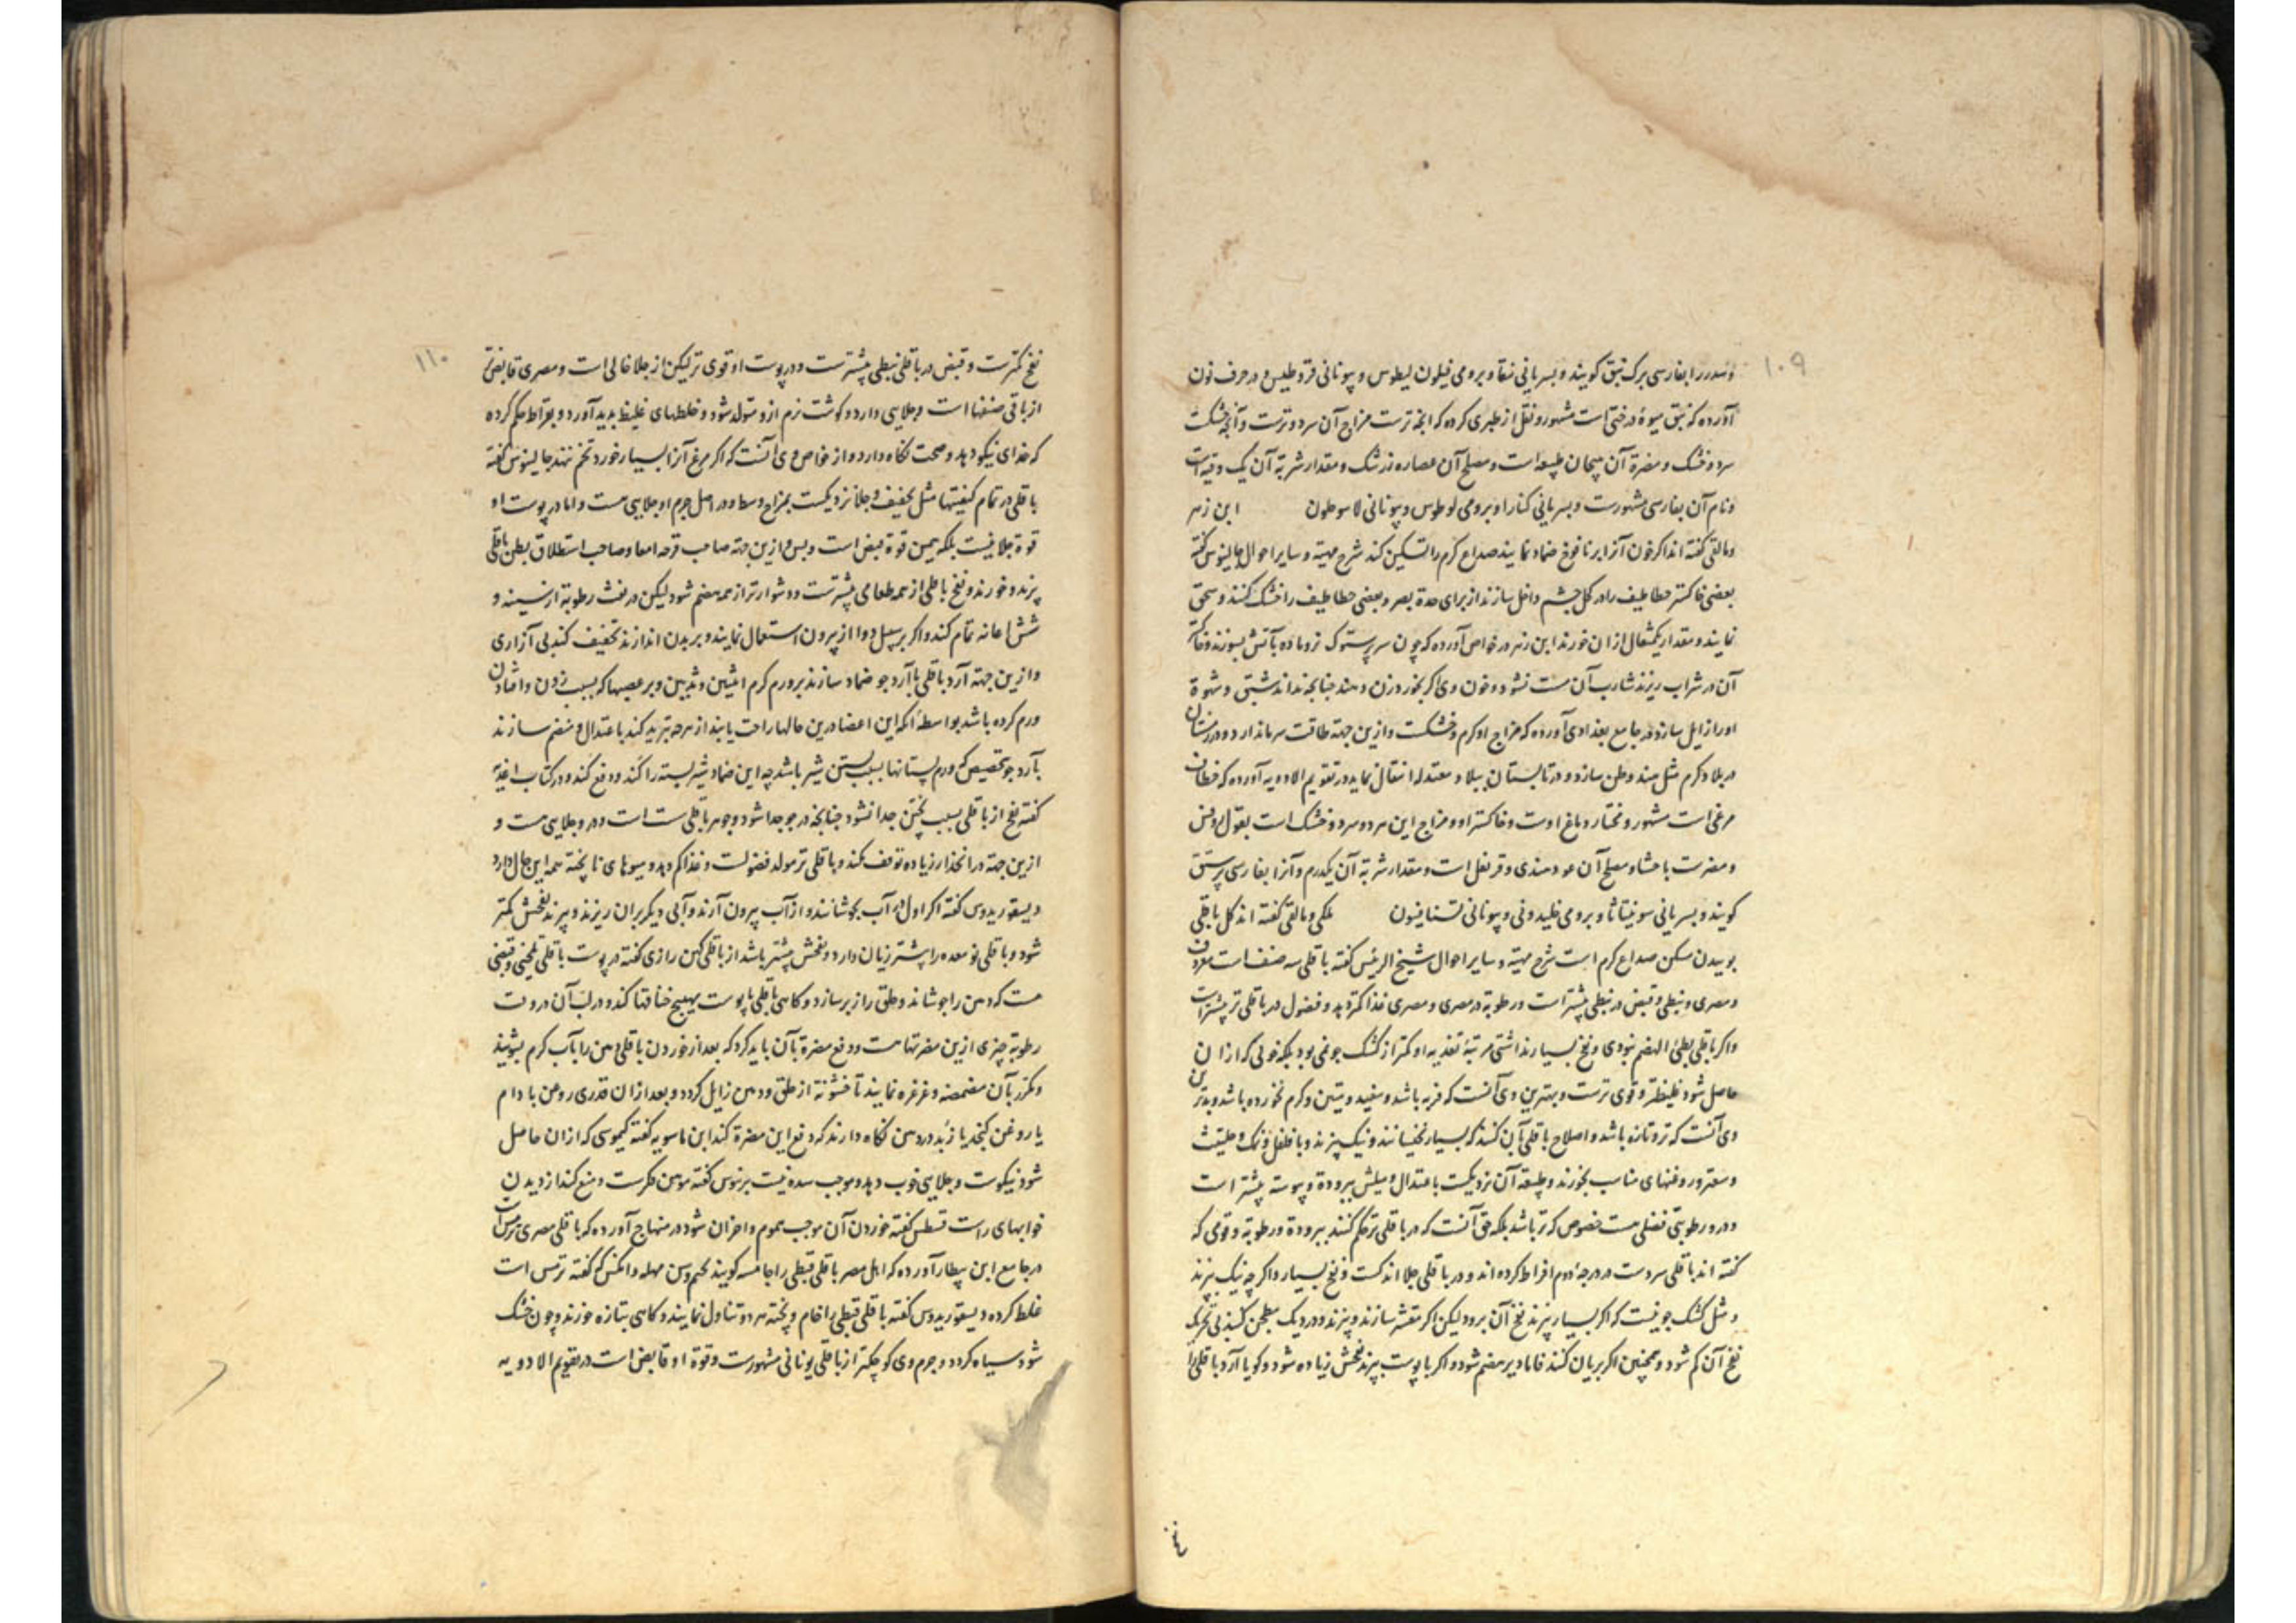 ۱۰۹
وسدر را بفارسی برک نبق کویند و بسریانی نبقا و برومی فیلون لیطوس و یونانی قروطیس و در حرف نون
آورده که نبق میوهٔ درختی است مشهور و نقل از طبری کرده که انچه ترست مزاج آن سرد و ترست و آنچه خشکت
سرد و خشک و مضرة آن هیجان بلیغه است و مصلح آن عصاره زرشک و مقدار شربة آن یک وقیه است
ونام آن بفارسی مشهورست و بسریانی کنارا و برومی لوطوس و یونانی لاسوطون این زهر
ومالقی کفته اند اکر خون آنرا بر نافوخ ضماد نمایند صداع کرم را تسکین کند شرح مهیة و سایر احوال جالینوس کفته
بعضی خاکستر خطاطیف را در کحل چشم داخل سازند از برای حدة بصر و بعضی خطاطیف را خشک کنند و سحق
نمایند و مقدار یکمثقال ازان خورند ابن زهر در خواص آورده که چون سر پرستوک نر و ماده بآتش بسوزند و خاکستر
آن در شراب ریزند شارب آن مست نشود و خون وی اکر بخورد زن دهند چنانچه نداند شبق و شهوة
او را زایل سازد و در جامع بغدادی آورده که مزاج او کرم و خشکست و ازین جهة طاقت سرما ندارد و در زمستان
در بلاد کرم مثل هند وطن سازد و در تابستان ببلاد معتدله انتقال نماید در تقویم الادویه آورده که خطاف
مرغی است مشهور و مختار دماغ اوست و خاکستر او و مزاج این هر دو سرد و خشک است بقول روفس
و مضرست باحشا و مصلح آن عود هندی و قرنفل است و مقدار شربة آن یکدرم و آنرا بفارسی پرستق
کویند و بسریانی سونیتاثا و برومی خلیدونی و یونانی تسنافیون ملکی و مالقی کفته اند کل باقلی
بوییدن مسکن صداع کرم است شرح مهیة و سایر احوال شیخ الرئیس کفته باقلی سه صنف است معروف
و مصری و نبطی و قبض در نبطی بیشتر است و رطوبة در مصری و مصری غذا کمتر دهد و فضول در باقلی تر بیشتر است
واکر باقلی بطئ الهضم نبودی و نفخ بسیار نداشتی مرتبهٔ تغذیه او کمتر از کشک جو نمی بود بلکه خونی که ازان
حاصل شود غلیظتر و قوی ترست و بهترین وی آنست که فربه باشد و سفید و متین و کرم نخورده باشد و بدترین
وی آنست که تر و تازه باشد و اصلاح باقلی بآن کنند که بسیار بخیسانند و نیک بپزند و با فلفل و نمک و حلتیت
و سعتر و روغنهای مناسب بخورند و طبیعة آن نزدیکست باعتدال و میلش ببرودة و یبوسته بیشتر است
و در و رطوبتی فضلی هست خصوص که تر باشد بلکه حق آنست که در باقلی تر حکم کنند ببرودة و رطوبة و قومی که
کفته اند باقلی سردست در درجهٔ دوم افراط کرده اند و در باقلی جلا اندکست و نفخ بسیار و اکر چه نیک بپزند
و مثل کشک جو نیست که اکر بسیار بپزند نفخ آن برود لیکن اکر مقشر سازند و بپزند و در دیک بطحن کنند بی تحریک
نفخ آن کم شود و همچنین اکر بریان کنند فاما دیر هضم شود و اکر با پوست بپزند نفخش زیاده شود و کویا آرد باقلی را
نفخ
۱۱۰
نفخ کمترست و قبض در باقلی نبطی بیشترست و در پوست او قوی تر لیکن از جلا خالی است و مصری قابض تر
از باقی صنفها است و جلایی دارد و کوشت نرم ازو متولد شود و خلطهای غلیظ بدید آورد و بقراط حکم کرده
که غذای نیکو دهد و صحت نکاه دارد و از خواص وی آنست که اکر مرغ آنرا بسیار خورد تخم ننهد جالینوس کفته
باقلی در تمام کیفیتها مثل تجفیف و جلا نزدیکست بمزاج وسط و در اصل جرم او جلایی هست و اما در پوست او
قوة جلا نیست بلکه همین قوة قبض است و بس و ازین جهة صاحب قرحه امعا و صاحب استطلاق بطن باقلی
پزند و خورند و نفخ باقلی از همه طعامی بیشترست و دشوارتر از همه هضم شود لیکن در نفث رطوبة از سینه و
شش اعانه تمام کند و اکر بر سبیل دوا از بیرون استعمال نمایند و بر بدن اندازند تجفیف کند بی آزاری
وازین جهة آرد باقلی با آرد جو ضماد سازند بر ورم کرم انثیین و ثدیین و بر عصبها که بسبب زدن و افتادن
ورم کرده باشد بواسطهٔ انکه این اعضا درین حالها راحت یابند از هر چه تبرید کند باعتدال و منضم سازند
بآرد جو بتخصیص که ورم پستانها بسبب بستن شیر باشد چه این ضماد شیر بسته را کند و دفع کند و در کتاب اغذیه
کفته نفخ از باقلی بسبب پختن جدا نشود چنانچه در جو جدا شود و جوهر باقلی سست است و در و جلایی هست و
ازین جهة در انحدار زیاده توقف نکند و باقلی تر مولد فضولست و غذا کم دهد و میوهای ناپخته همه این حال دارد
دیسقوریدوس کفته اکر اول در آب بجوشانند و از آب بیرون آرند و آبی دیکر بران ریزند و بپزند نفخش کمتر
شود و باقلی نو معده را بیشتر زیان دارد و نفخش بیشتر باشد از باقلی کهن رازی کفته در پوست باقلی تلخی و قبضی
هست که دهن را بجوشاند و حلق را زبر سازد و کاهی باقلی با پوست تهییج خناقها کند و در لب آن دروست
رطوبة چیزی ازین مضرتها هست و دفع مضرة بآن باید کرد که بعد از خوردن باقلی دهن را بآب کرم بشویند
ومکرر بآن مضمضه و غرغره نمایند تا خشونة از حلق و دهن زایل کردد و بعد ازان قدری روغن بادام
یا روغن کنجد یا زبد در دهن نکاه دارند که دفع این مضرة کند ابن ماسویه کفته کیموسی که ازان حاصل
شود نیکوست و جلایی خوب دهد و موجب سده نیست برنوس کفته موهن فکرست و منع کند از دیدن
خوابهای راست قسطس کفته خوردن آن موجب هموم و احزان شود در منهاج آورده که باقلی مصری ترمس است
در جامع ابن بیطار آورده که اهل مصر باقلی قبطی را جامسه کویند بجیم و سین مهمله و انکس که کفته ترمس است
غلط کرده دیسقوریدوس کفته باقلی قبطی را خام و پخته هر دو تناول نمایند و کاهی بتازه خورند و چون خشک
شود سیاه کردد و جرم وی کوچکتر از باقلی یونانی مشهورست و قوة او قابض است در تقویم الادویه